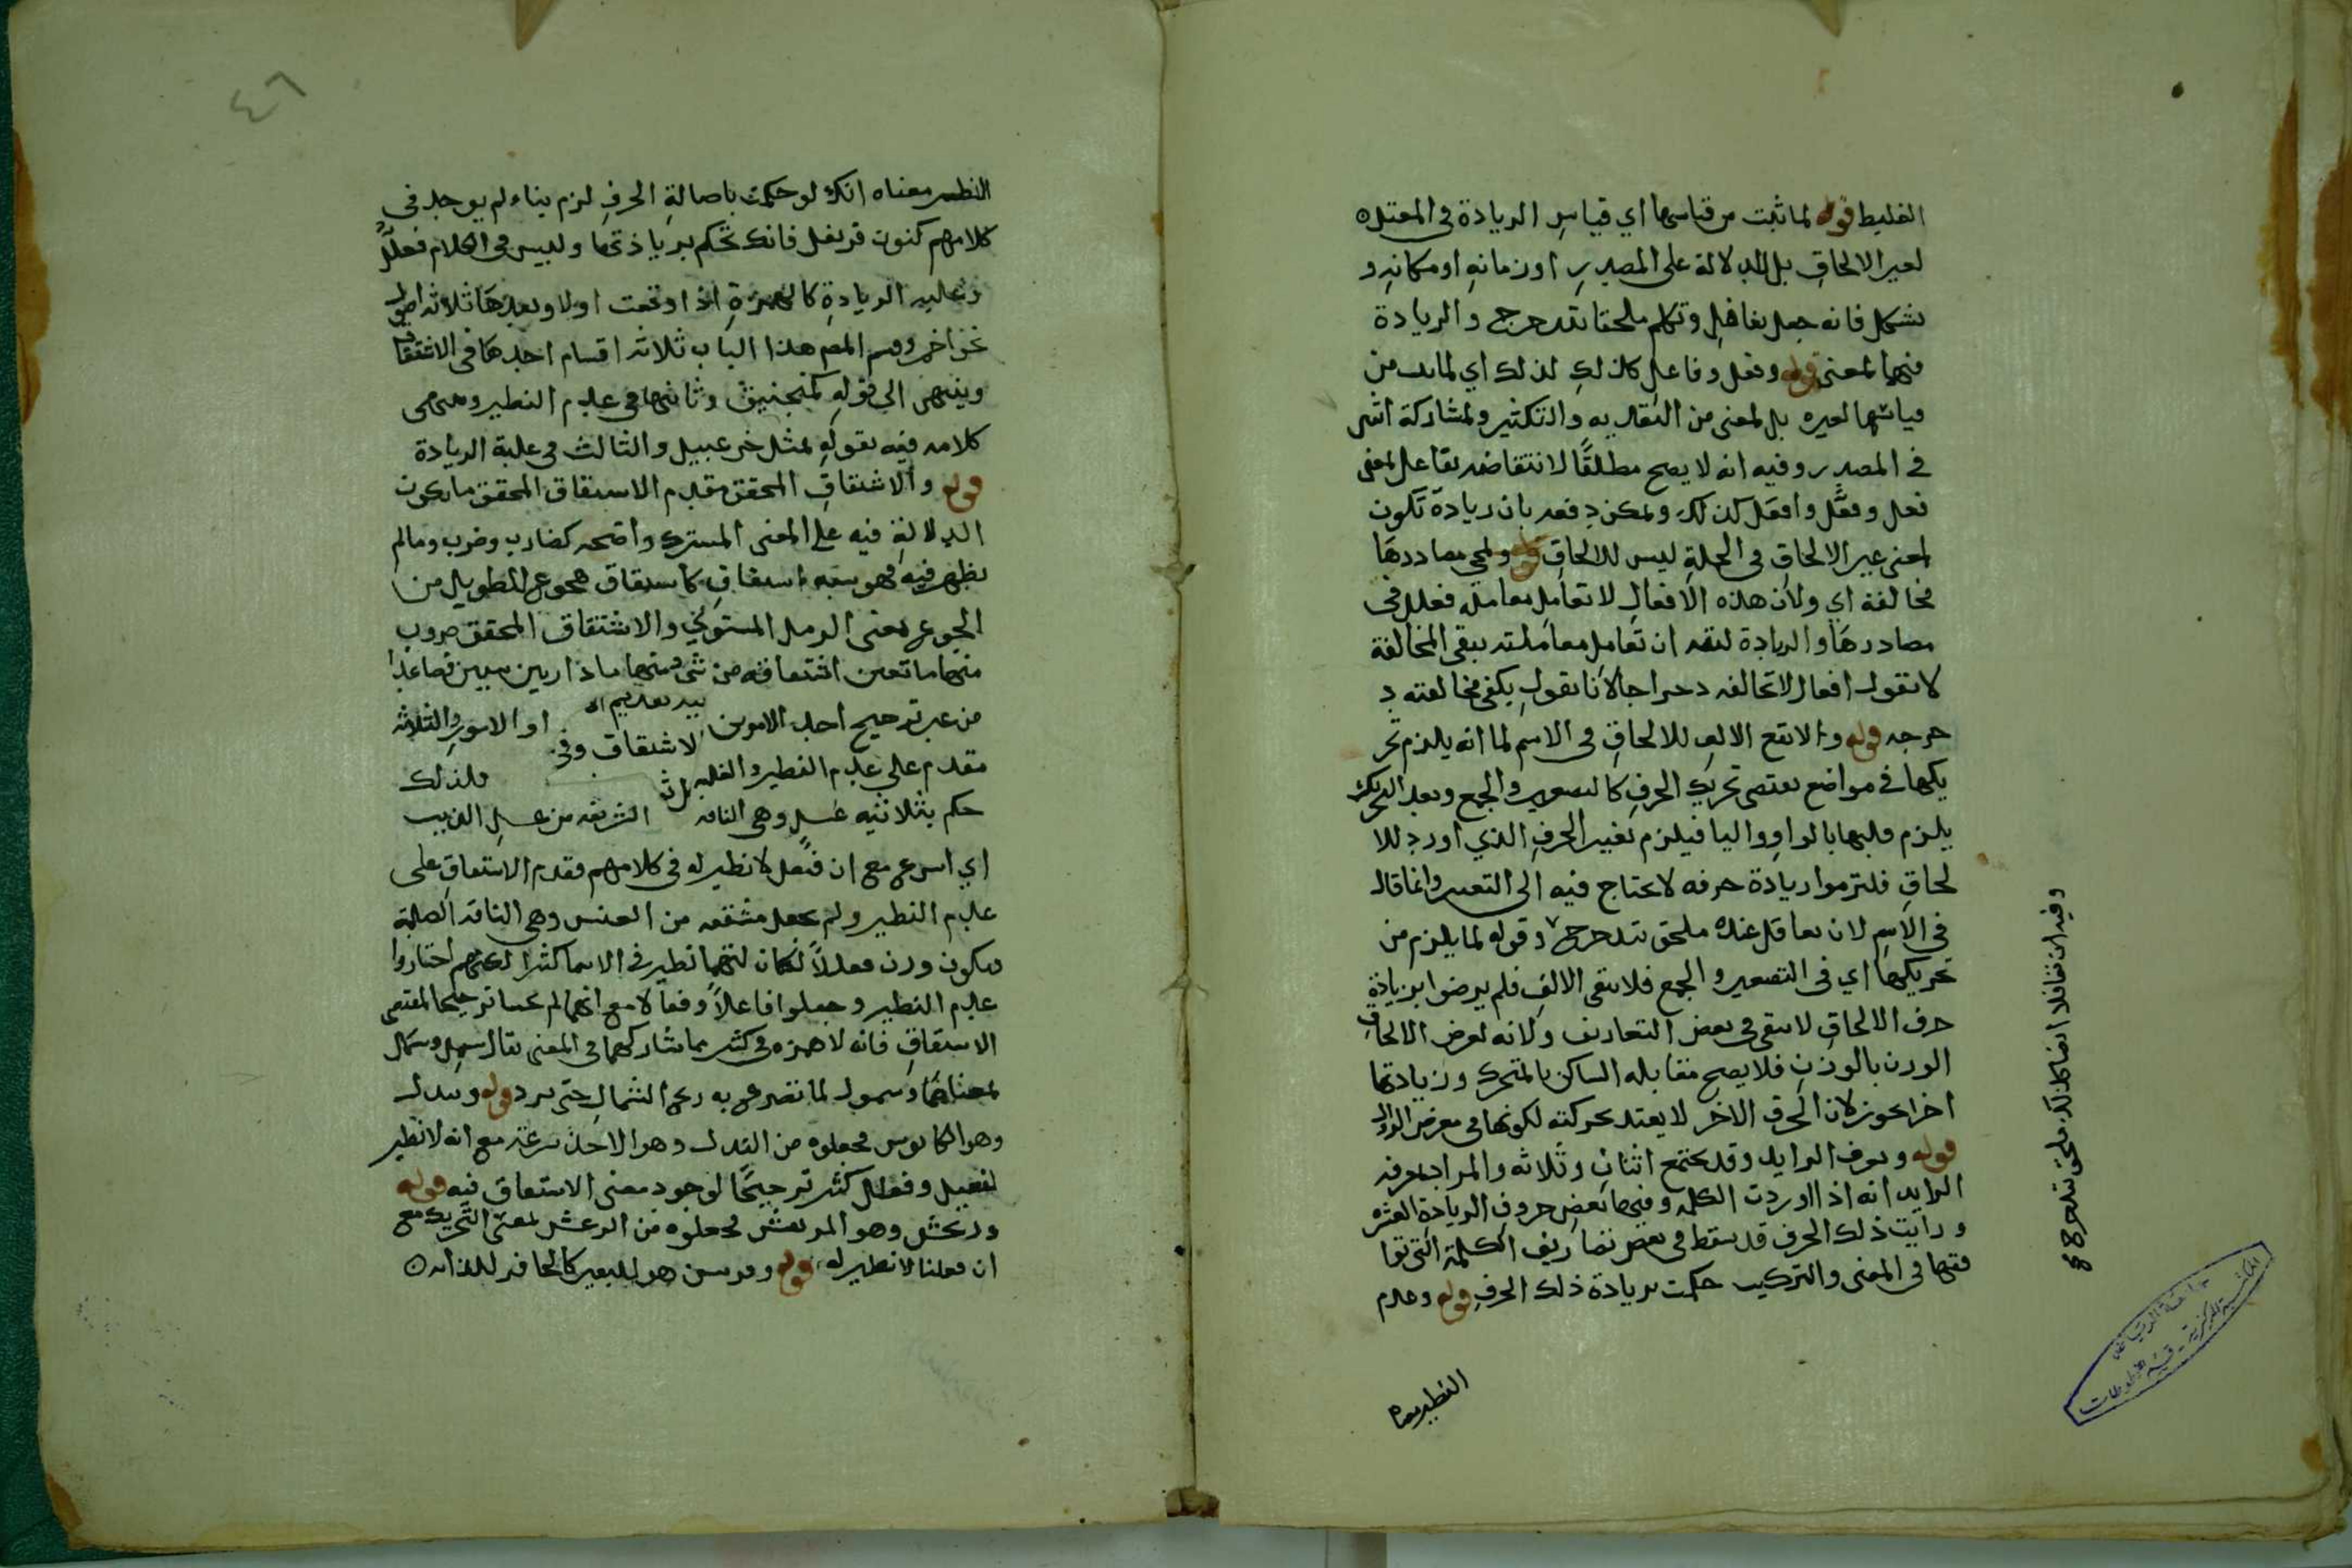 الغليط قوله لما ثبت من قياسها اي قياس الزيادة في المعتدة
لغير الالحاق بل للدلالة على المصدر او زمانه او مكانه و
يشكل فانه جعل تغافل وتكلم ملحقا بتدحرج والزيادة
فيها لمعنى قوله وفعل وفاعل كذلك لذلك اي لما ثبت من
قياسها لغيره بل لمعنى من التعديه والتكثير ولمشاركة اثنين
في المصدر وفيه انه لا يصح مطلقًا لانتقاضه بفاعل لمعنى
فعل وفعَّل وافعل كذلك ويمكن دفعه بان زيادة تكون
لمعنى غير الالحاق في الجملة ليس للالحاق قوله ولمجي مصادرها
مخالفة اي ولان هذه الافعال لا تعامل معاملة فعلل في
مصادرها والزيادة لتقد ان تعامل معاملته يبقى المخالفة
لا تقول افعال لا تخالفه دحراجا لانا نقول يكفي مخالفته د
حرجه قوله ولا تقع الالف للالحاق في الاسم لما انه يلزم تحر
يكها في مواضع تقتضي تحريك الحرف كالتصغير والجمع وبعد التحريك
يلزم قلبها بالواو واليا فيلزم تغير الحرف الذي اورد للا
لحاق فلتزموا زيادة حرفه لا يحتاج فيه الى التغيير وانما قال
في الاسم لان تغافل عنده ملحق بتدحرج وقوله لما يلزم من
تحريكها اي في التصغير والجمع فلا يبقى الالف فلم يرضوا بزيادة
حرف الالحاق لا يبقى في بعض التصاريف ولانه لغرض الالحاق
الوزن بالوزن فلا يصح مقابله الساكن بالمتحرك وزيادتها
اخرا يجوز لان الحرف الاخر لا يعتد بحركته لكونها في معرض الزوال
قوله ويعرف الزايد وقد يجتمع اثنان وثلاثه والمراد بمعرفة
الزايد انه اذا اوردت الكلمه وفيها بعض حروف الزيادة العشره
ورايت ذلك الحرف قد يسقط في بعض تصاريف الكلمة التي توا
فقها في المعنى والتركيب حكمت بزيادة ذلك الحرف قوله وعدم
النظير معناه
وفيه ان تغافلا ايضا كذلك ملحق بتدحرج
المكتبة المركزية - قسم المخطوطات
٤٦
النظير معناه انك لو حكمت باصالة الحرف لزم بناء لم يوجد في
كلامهم كنون قرنفل فانك تحكم بزيادتها وليس في الكلام فعلُّل
وغلبه الزيادة كالهمزة اذا وقعت اولا وبعدها ثلاثه اصول
نحو احمر وقسم المصم هذا الباب ثلاثه اقسام احدها في الاشتقاق
وينتهي الى قوله كمنجنيق وثانيها في عدم النظير وينتهي
كلامه فيه بقوله بمثل خزعبيل والثالث في غلبة الزيادة
قوله والاشتقاق المحقق مقدم الاشتقاق المحقق ما يكون
الدلالة فيه على المعنى المشترك واضحه كضارب وضرب وما لم
يظهر فيه فهو شبه اشتقاق كاشتقاق هجوع للطويل من
الجوع بمعنى الرمل المستوي والاشتقاق المحقق ضروب
منها ما تعين اشتقاقه من شي ومنها ما دار بين شيين فصاعدا
من غير ترجيح احد الامرين او الامور الثلاثه
الاشتقاق وفي
مقدم على عدم النظير والغلبه فلذلك
حكم بثلاثيه عنسل وهي الناقه السريعه من عسل الذيب
اي اسرع مع ان فنعل لا نظير له في كلامهم فقدم الاشتقاق على
عدم النظير ولم يجعل مشتقه من العنس وهي الناقه الصلبة
فيكون وزن فعللاً لكان لهما نظير في الاسما كثيرا لكنهم اختاروا
عدم النظير وجعلوا فاعلاً وفعالا مع انهما لم يجيا ترجيحا لمقتضى
الاشتقاق فانه لا همزه في كثير مما يشاركهما في المعنى يقال سهل وشمال
بمعناهما وشمول لما تضرع به ريح الشمال حتى برد قوله ويبدل
وهو الكابوس فجعلوه من الندل وهو الاخذ بسرعه مع انه لا نظير
لفعيل وفعلل كثير ترجيحًا لوجود معنى الاشتقاق فيه قوله
ورعشن وهو المرتعش فجعلوه من الرعش لمعنى التحريك مع
ان فعلنا لا نظير له قوله وفرسن هو للبعير كالحافر للدابه